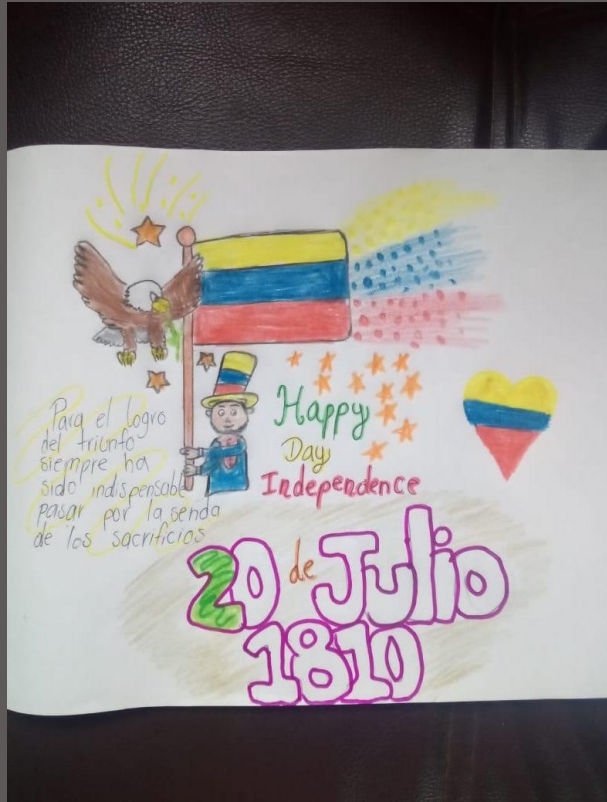 Para el logro
del triunfo
siempre ha
sido indispensable
pasar por la senda
de los sacrificios
Happy
Day
Independence
20 de Julio
1810